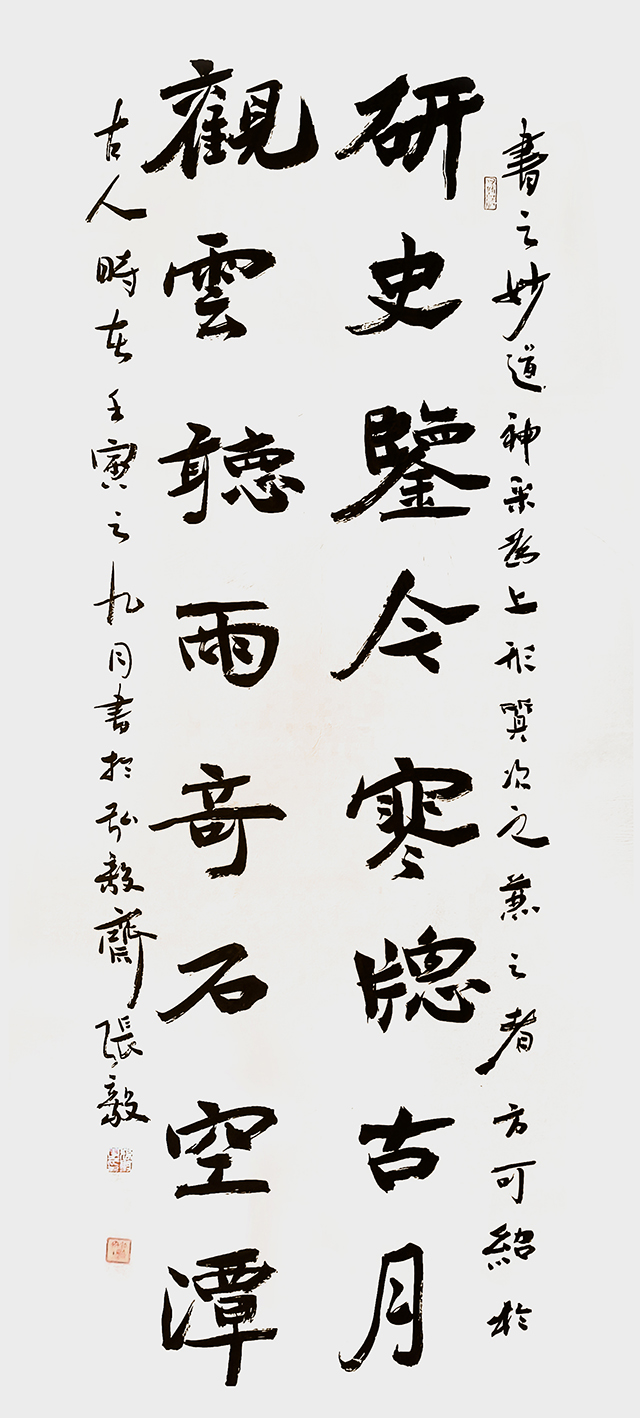 書之妙道神采為上形質次之兼之者方可紹於
研史鑒今寒牕古月
觀雲聽雨奇石空潭
古人時在壬寅之九月書於弘毅齋張毅